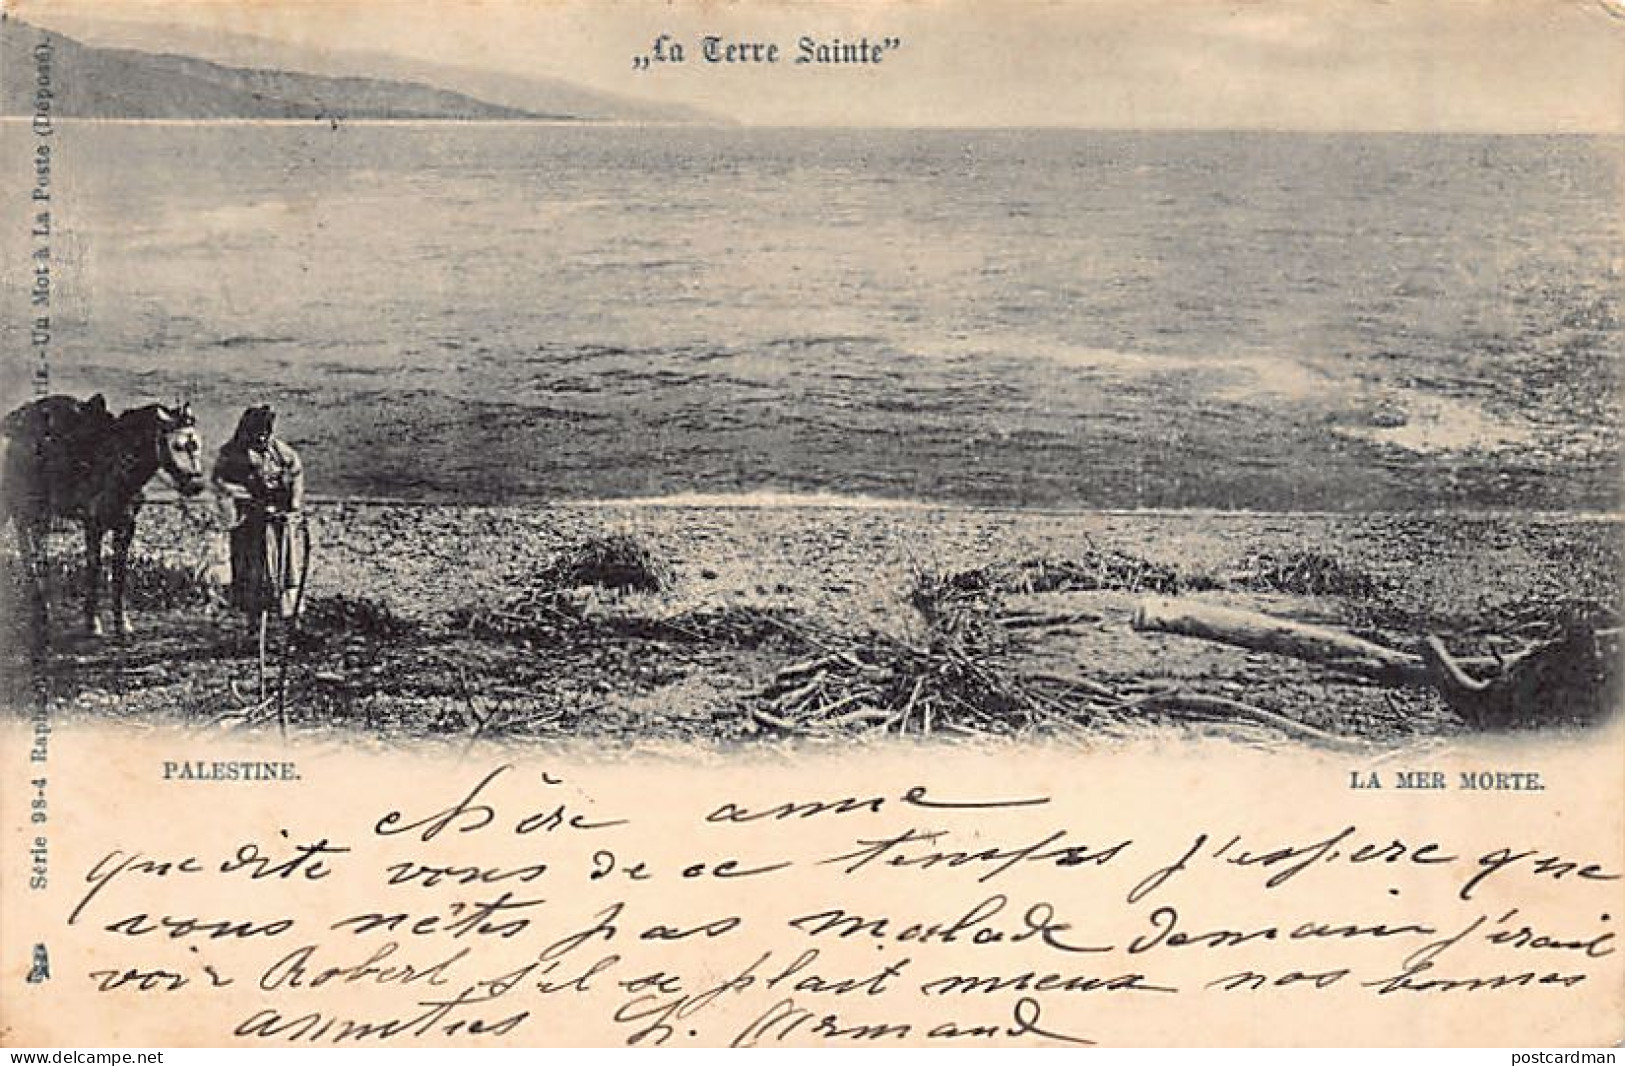 „La Terre Sainte”
Série 98-4 Raph - Un Mot à La Poste (Déposé).
PALESTINE.
LA MER MORTE.
chère amie
que dite vous de ce temps j'espère que
vous n'êtes pas malade demain j'irait
voir Robert s'il se plait mieux nos bonnes
amities L. Armand
delcampe.net
postcardman